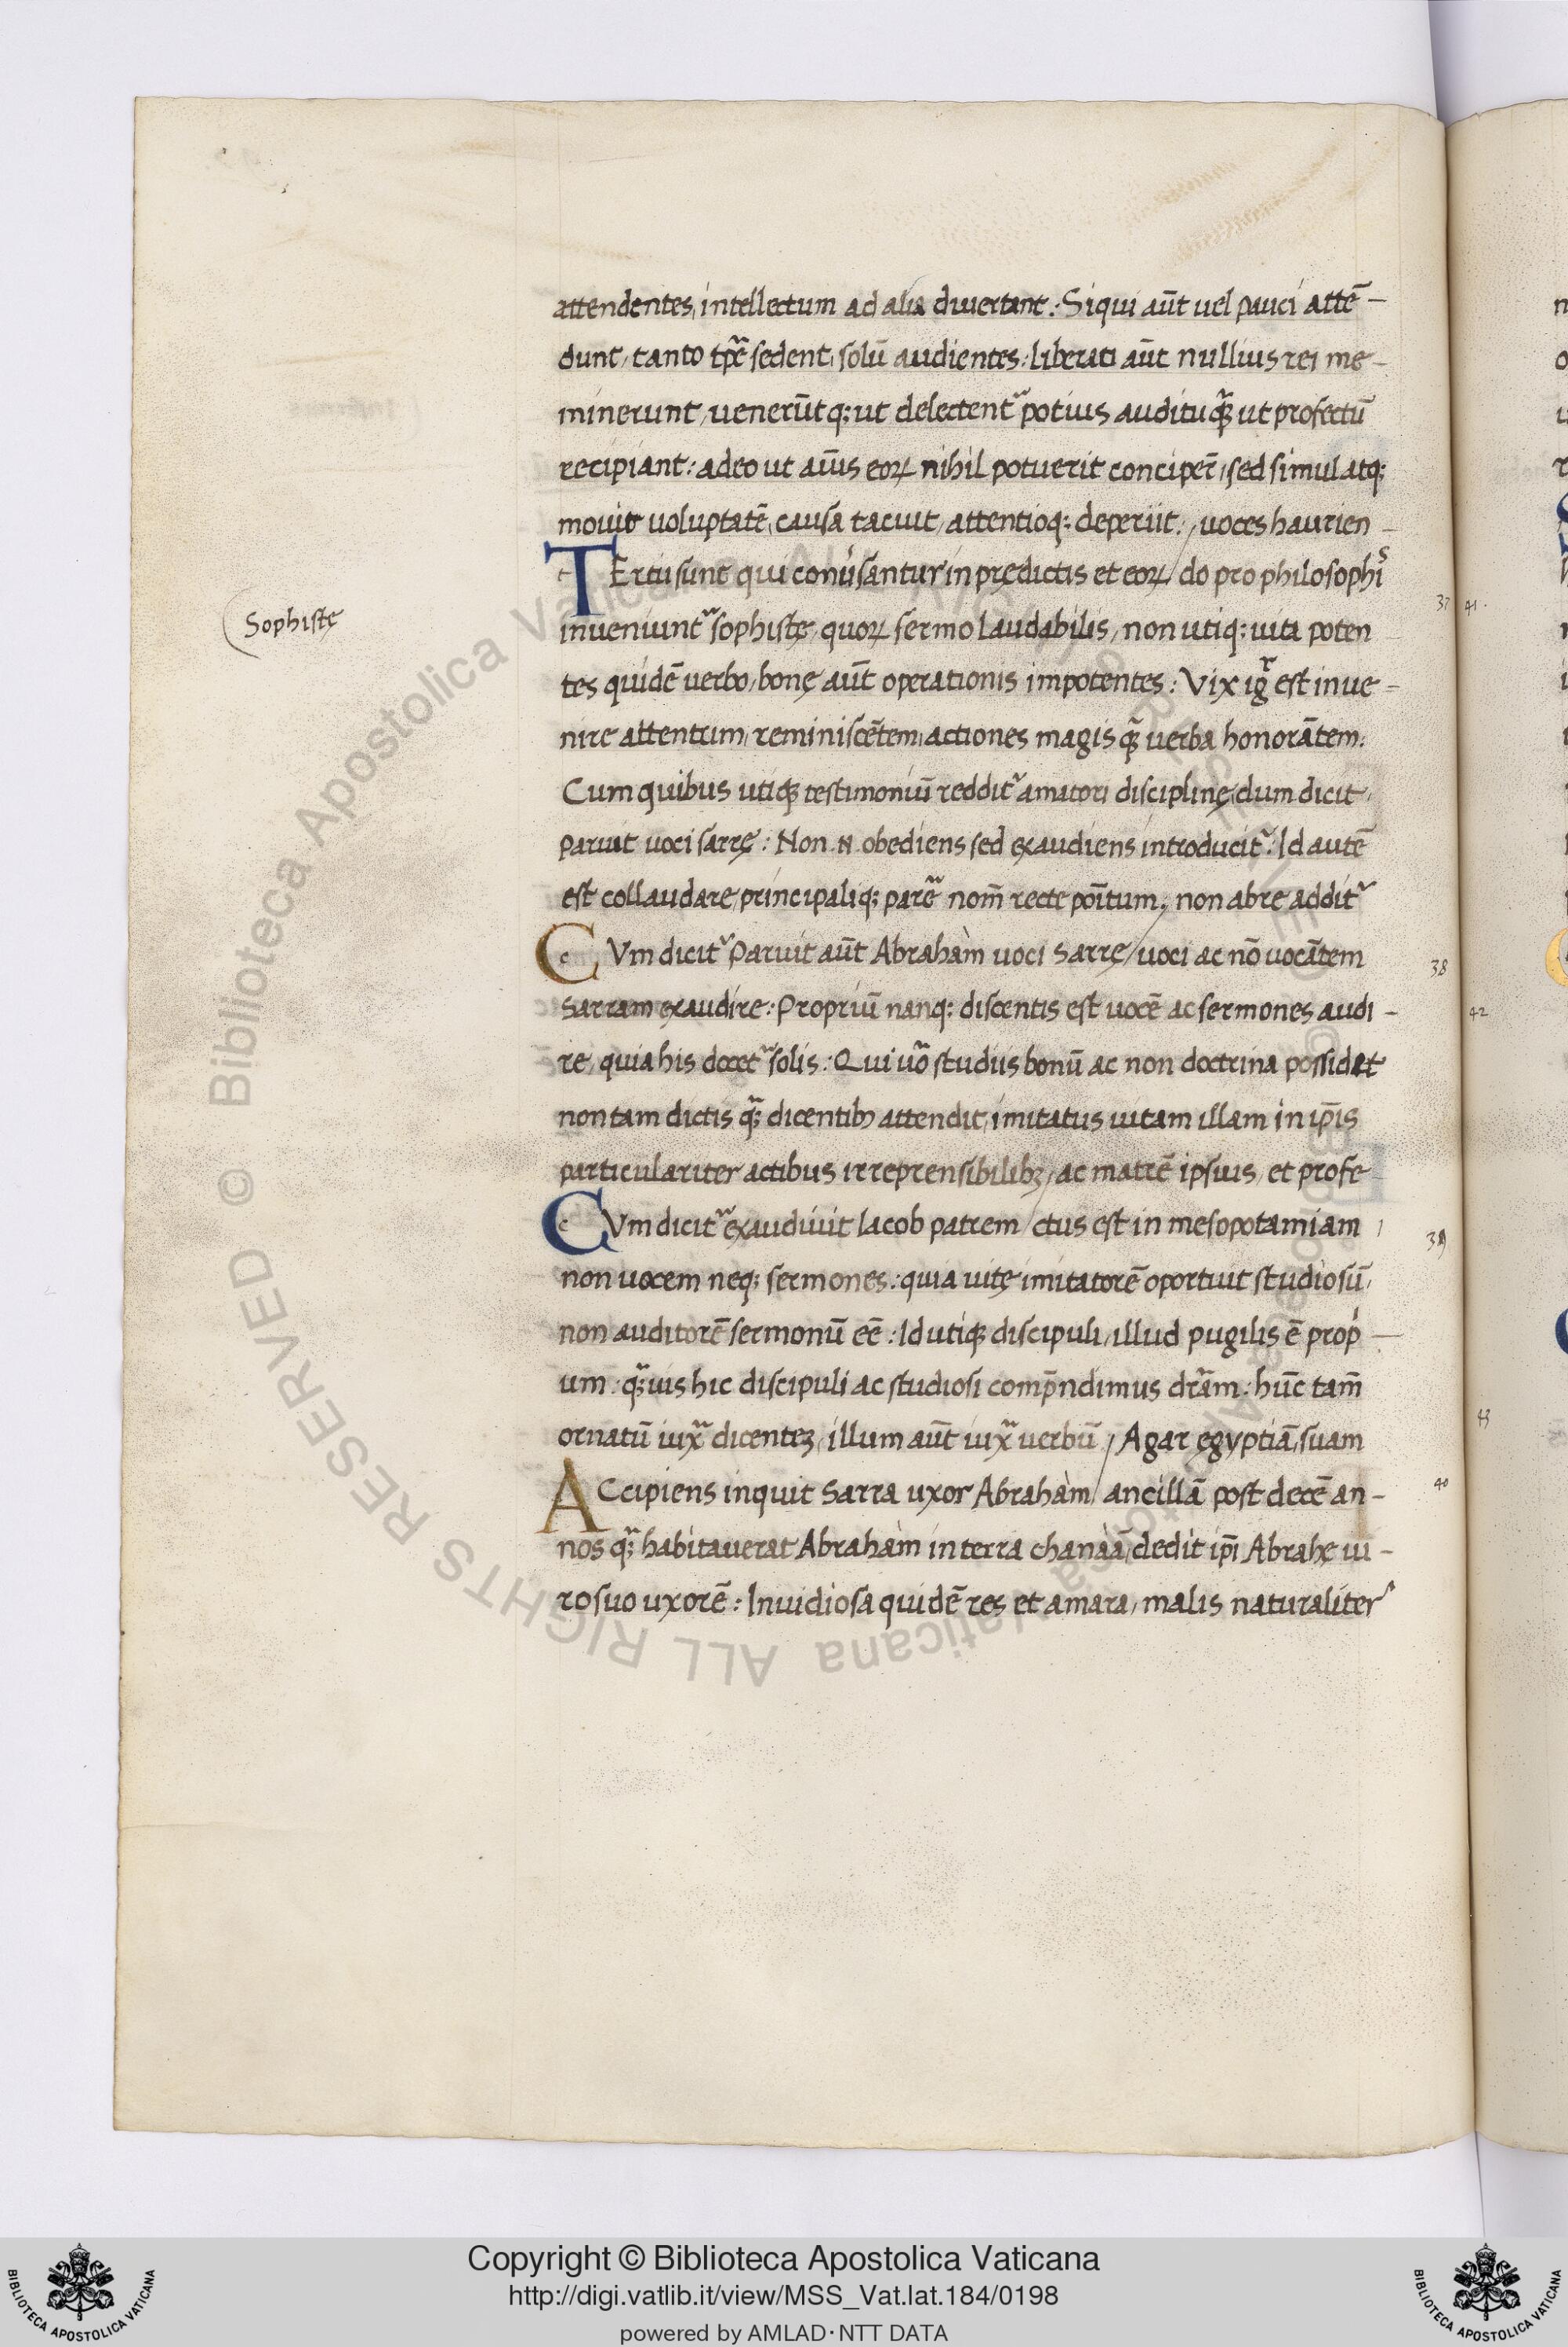 attendentes, intellectum ad alia divertant : Siqui aūt uel pauci attē-
dunt, tanto tp̄r̄e sedent, solū audientes : liberati aūt nullius rei me-
minerunt, uenerūtq; ut delectentᷓ potius auditu qᷓȝ ut profectū
recipiant : adeo ut aīus eoꝝ nihil potuerit conciper̄, sed simul atq;
mouit uoluptatē, causa tacuit, attentioq; deperiit. / uoces haurien-
TErtii sunt qui conu̓santur in prędictis et eoꝝ / do pro philosophi̾s
Sophistę
inueniuntᷓ sophistę, quoꝝ sermo laudabilis, non utiq; uita poten
tes quidē uerbo, bonę aūt operationis impotentes : Vix igͬ est inue-
nire attentum, reminiscētem, actiones magis qᷓ uerba honorātem.
Cum quibus utiqȝ testimoniū redditᷓ amatori disciplinę, dum dicit,
paruit uoci sarrę : Non .N. obediens sed exaudiens introducitᷓ : Id autē
est collaudare, principaliq; parē nom̄ recte poītum, non abre additᷓ
CVm dicitᷓ Paruit aūt Abrahàm uoci Sarrę / uoci ac nō uocātem
Sarram exaudire : Propriū nanq; discentis est uocē ac sermones audi-
re, quia his docetᷓ solis : Qui uō studiis bonū ac non doctrina possidet
non tam dictis qᷓȝ dicentibȝ attendit, imitatus uitam illam in ip̄is
particulariter actibus irreprensibilibȝ, ac matrē ipsius, et profe-
CVm dicitᷓ exaudiuit Iacob patrem / ctus est in mesopotamiam
non uocem neq; sermones : quia uitę imitatorē oportuit studiosū,
non auditorē sermonū eē : Id utiqȝ discipuli, illud pugilis ē propi-
um : qᷓȝuis hic discipuli ac studiosi comp̄ndimus drᷓam : hūc tam̄
ornatū iuxᷓ dicentez, illum aūt iuxᷓ uerbū / Agar ęgyptiā, suam
ACcipiens inquit Sarra uxor Abrahàm / ancillā post decē an-
nos qᷓȝ habitauerat Abrahàm in terra chanàā, dedit ip̄i Abrahę ui-
ro suo uxorē : Inuidiosa quidē res et amara, malis naturaliter
37 41.
38
42
39
43
40
© Biblioteca Apostolica Vaticana ALL RIGHTS RESERVED
Copyright © Biblioteca Apostolica Vaticana
http://digi.vatlib.it/view/MSS_Vat.lat.184/0198
powered by AMLAD·NTT DATA
BIBLIOTECA APOSTOLICA VATICANA
BIBLIOTECA APOSTOLICA VATICANA